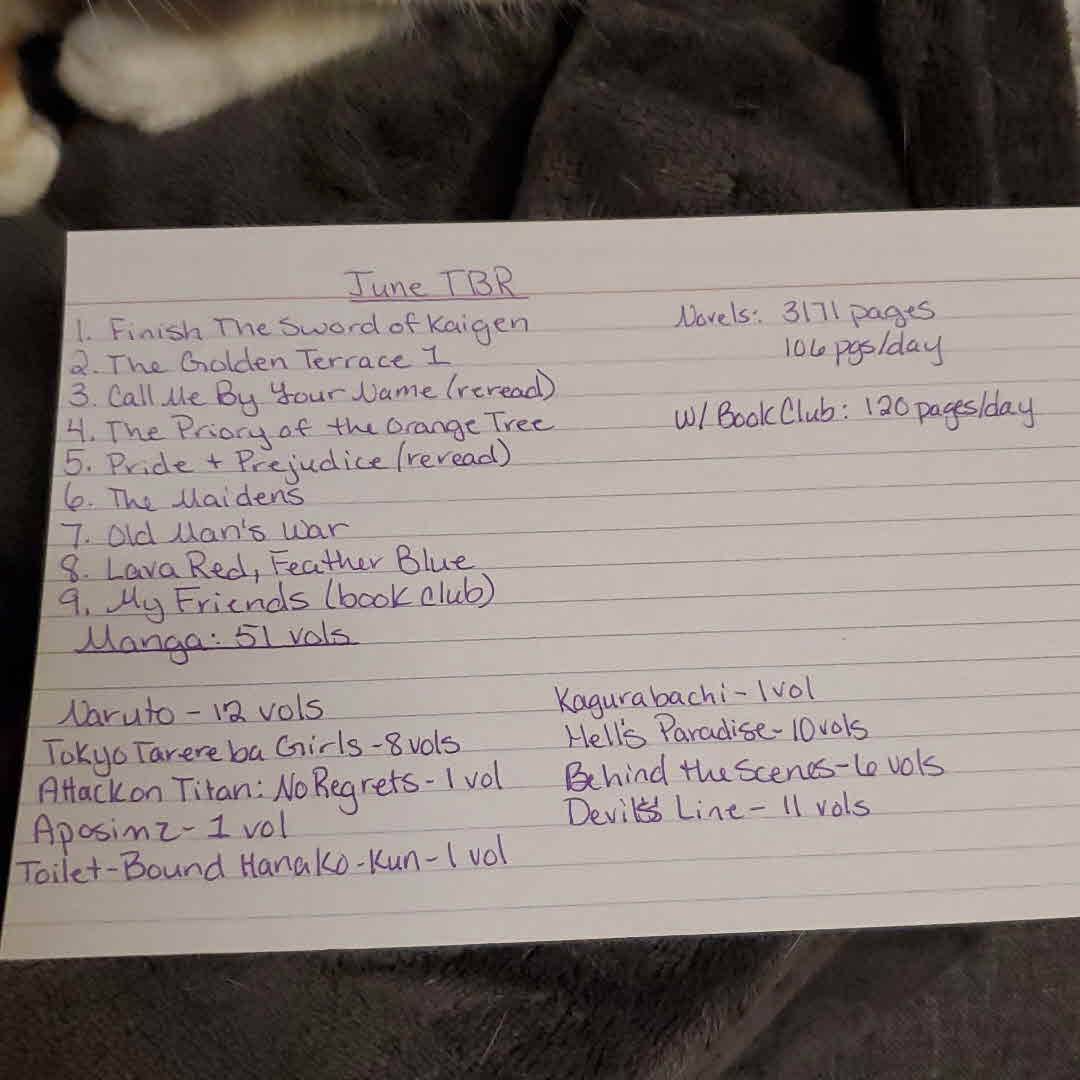 June TBR
1. Finish The Sword of Kaigen
2. The Golden Terrace 1
3. Call Me By Your Name (reread)
4. The Priory of the Orange Tree
5. Pride + Prejudice (reread)
6. The Maidens
7. Old Man's War
8. Lava Red, Feather Blue
9. My Friends (book club)
Novels: 3171 pages
106 pgs/day
W/ Book Club: 120 pages/day
Manga: 51 vols
Naruto - 12 vols
Tokyo Tarereba Girls - 8 vols
Attack on Titan: No Regrets - 1 vol
Aposimz - 1 vol
Toilet-Bound Hanako-Kun - 1 vol
Kagurabachi - 1 vol
Hell's Paradise - 10 vols
Behind the Scenes - 6 vols
Devils' Line - 11 vols